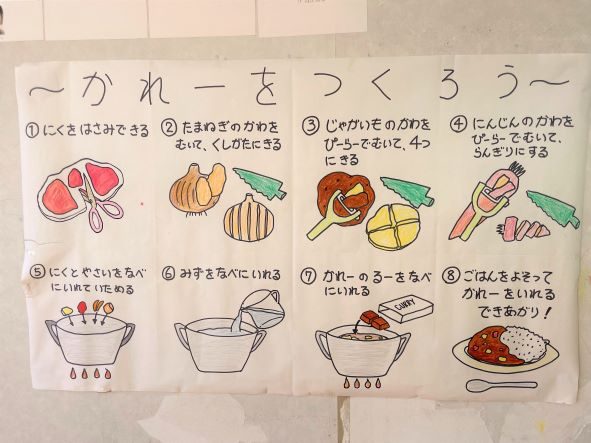 ～かれーをつくろう～
① にくをはさみできる
② たまねぎのかわを
むいて、くしがたにきる
③ じゃがいものかわを
ぴーらーでむいて、4つ
にきる
④ にんじんのかわを
ぴーらーでむいて、
らんぎりにする
⑤ にくとやさいをなべ
にいれていためる
⑥ みずをなべにいれる
⑦ かれーのるーをなべ
にいれる
CURRY
⑧ ごはんをよそって
かれーをいれる
できあがり！